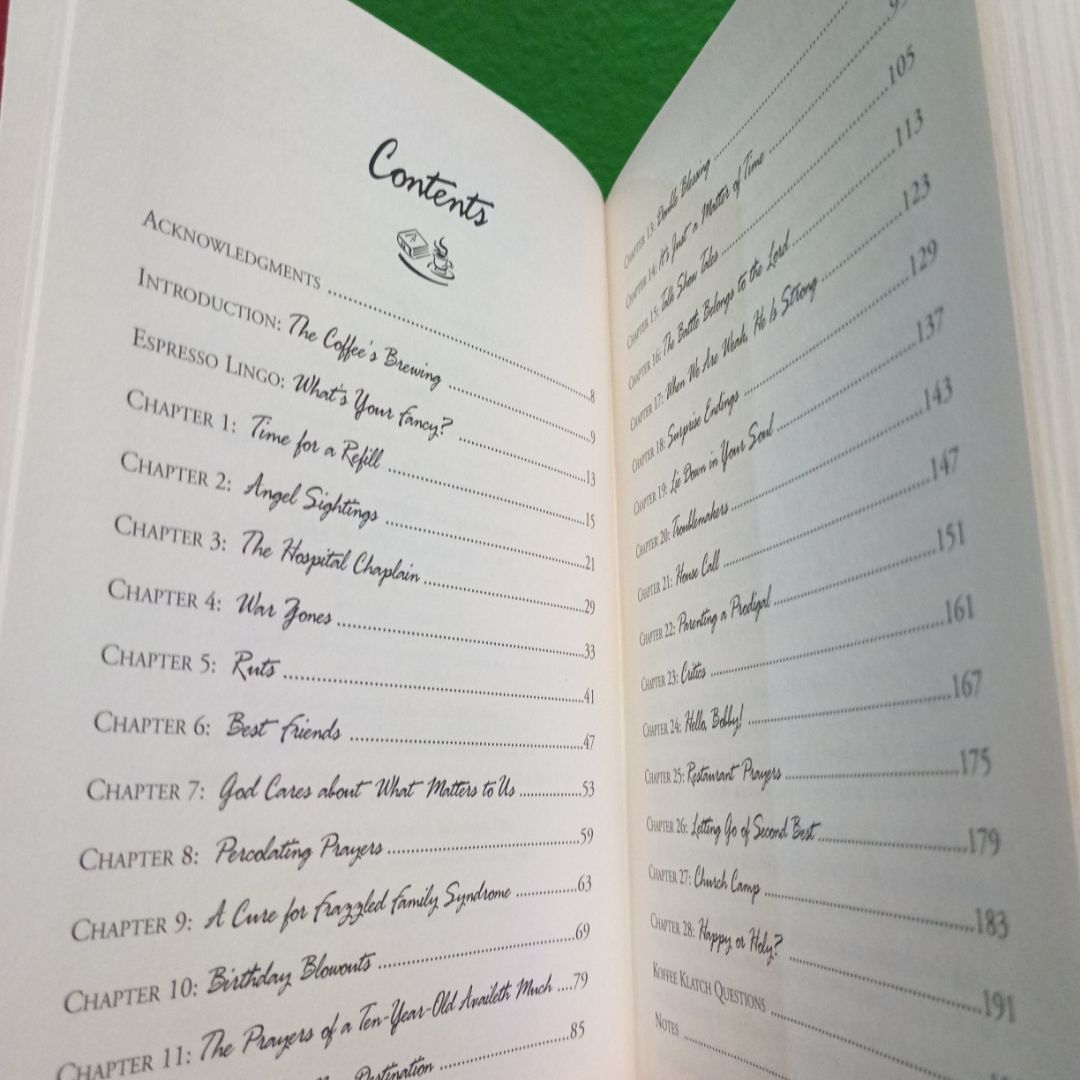 Contents
ACKNOWLEDGMENTS ........ 8
INTRODUCTION: The Coffee's Brewing ........ 9
ESPRESSO LINGO: What's Your Fancy? ........ 13
CHAPTER 1: Time for a Refill ........ 15
CHAPTER 2: Angel Sightings ........ 21
CHAPTER 3: The Hospital Chaplain ........ 29
CHAPTER 4: War Zones ........ 33
CHAPTER 5: Ruts ........ 41
CHAPTER 6: Best Friends ........ 47
CHAPTER 7: God Cares about What Matters to Us ........ 53
CHAPTER 8: Percolating Prayers ........ 59
CHAPTER 9: A Cure for Frazzled Family Syndrome ........ 63
CHAPTER 10: Birthday Blowouts ........ 69
CHAPTER 11: The Prayers of a Ten-Year-Old Availeth Much .... 79
Destination ........ 85
CHAPTER 13: Double Blessing ........
CHAPTER 14: It's Just a Matter of Time ........
CHAPTER 15: Talk Show Tales ........ 105
CHAPTER 16: The Battle Belongs to the Lord ........ 113
CHAPTER 17: When We Are Weak, He Is Strong ........ 123
CHAPTER 18: Surprise Endings ........ 129
CHAPTER 19: Lie Down in Your Soul ........ 137
CHAPTER 20: Troublemakers ........ 143
CHAPTER 21: House Call ........ 147
CHAPTER 22: Parenting a Prodigal ........ 151
CHAPTER 23: Critics ........ 161
CHAPTER 24: Hello, Bobby! ........ 167
CHAPTER 25: Restaurant Prayers ........ 175
CHAPTER 26: Letting Go of Second Best ........ 179
CHAPTER 27: Church Camp ........ 183
CHAPTER 28: Happy or Holy? ........ 191
KOFFEE KLATCH QUESTIONS ........
NOTES ........